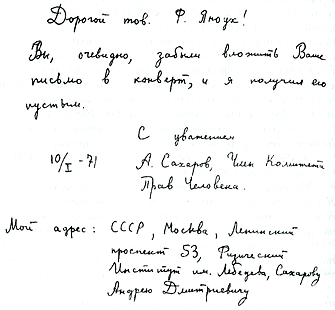 Дорогой тов. Ф. Яноух!
Вы, очевидно, забыли вложить Ваше
письмо в конверт, и я получил его
пустым.
С уважением
10/I -71 А. Сахаров, Член Комитета
Прав Человека.
Мой адрес: СССР, Москва, Ленинский
проспект 53, Физический
Институт им. Лебедева, Сахарову
Андрею Дмитриевичу